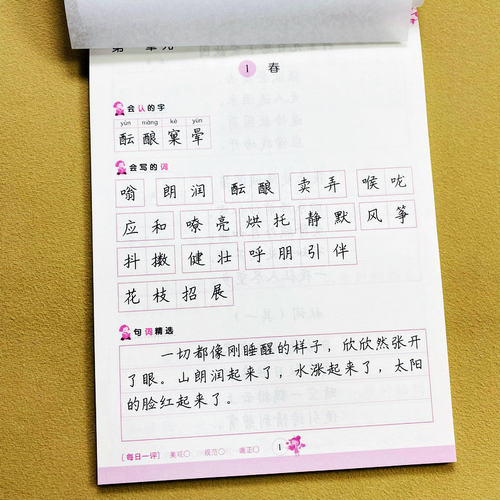 第一单元
1 春
会认的字
yùn niàng kē yùn
酝 酿 窠 晕
会写的词
嗡 朗润 酝酿 卖弄 喉咙
应和 嘹亮 烘托 静默 风筝
抖擞 健壮 呼朋引伴
花枝招展
句词精选
一切都像刚睡醒的样子，欣欣然张开
了眼。山朗润起来了，水涨起来了，太阳
的脸红起来了。
[每日一评] 美观○ 规范○ 端正○ 1